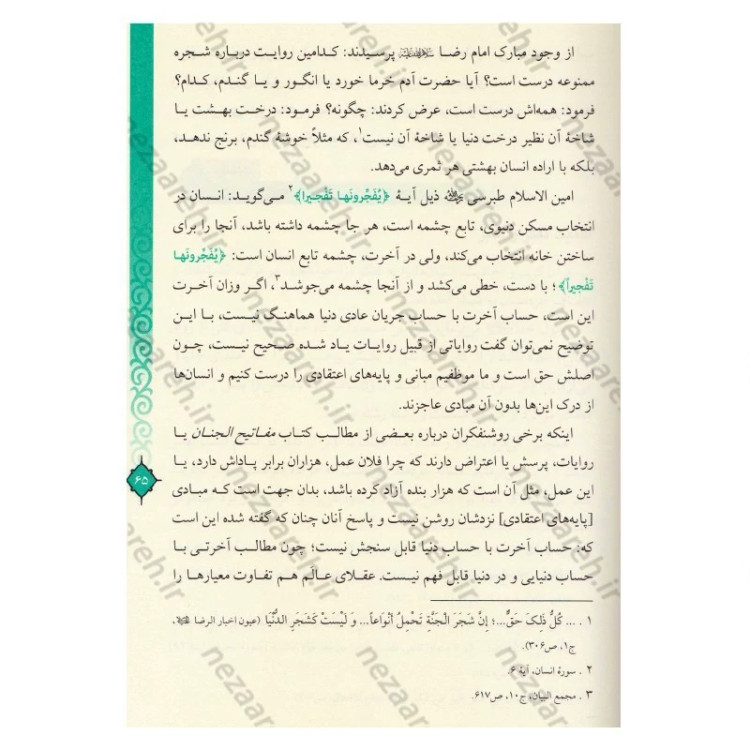 از وجود مبارک امام رضا علیه‌السلام پرسیدند: کدامین روایت درباره شجره
ممنوعه درست است؟ آیا حضرت آدم خرما خورد یا انگور و یا گندم، کدام؟
فرمود: همه‌اش درست است، عرض کردند: چگونه؟ فرمود: درخت بهشت یا
شاخهٔ آن نظیر درخت دنیا یا شاخهٔ آن نیست۱، که مثلاً خوشهٔ گندم، برنج ندهد،
بلکه با اراده انسان بهشتی هر ثمری می‌دهد.
امین الاسلام طبرسی ذیل آیهٔ ﴿یُفَجِّرونَها تَفْجیرا﴾۲ می‌گوید: انسان در
انتخاب مسکن دنیوی، تابع چشمه است، هر جا چشمه داشته باشد، آنجا را برای
ساختن خانه انتخاب می‌کند، ولی در آخرت، چشمه تابع انسان است: ﴿یُفَجِّرونَها
تَفْجیراً﴾؛ با دست، خطی می‌کشد و از آنجا چشمه می‌جوشد۳، اگر وزان آخرت
این است، حساب آخرت با حساب جریان عادی دنیا هماهنگ نیست، با این
توضیح نمی‌توان گفت روایاتی از قبیل روایات یاد شده صحیح نیست، چون
اصلش حق است و ما موظفیم مبانی و پایه‌های اعتقادی را درست کنیم و انسان‌ها
از درک این‌ها بدون آن مبادی عاجزند.
اینکه برخی روشنفکران درباره بعضی از مطالب کتاب مفاتیح الجنان یا
روایات، پرسش یا اعتراض دارند که چرا فلان عمل، هزاران برابر پاداش دارد، یا
این عمل، مثل آن است که هزار بنده آزاد کرده باشد، بدان جهت است که مبادی
[پایه‌های اعتقادی] نزدشان روشن نیست و پاسخ آنان چنان که گفته شده این است
که: حساب آخرت با حساب دنیا قابل سنجش نیست؛ چون مطالب آخرتی با
حساب دنیایی و در دنیا قابل فهم نیست. عقلای عالَم هم تفاوت معیارها را
۶۵
۱ . ... کُلُّ ذلِکَ حَقٌّ...؛ إنَّ شَجَرَ الْجَنَّةِ تَحْمِلُ أنْواعاً... وَ لَیْسَتْ کَشَجَرِ الدُّنْیا (عیون اخبار الرضا،
ج۱، ص۳۰۶).
۲ . سورهٔ انسان، آیهٔ ۶.
۳ . مجمع البیان، ج۱۰، ص۶۱۷.
nezaareh.ir